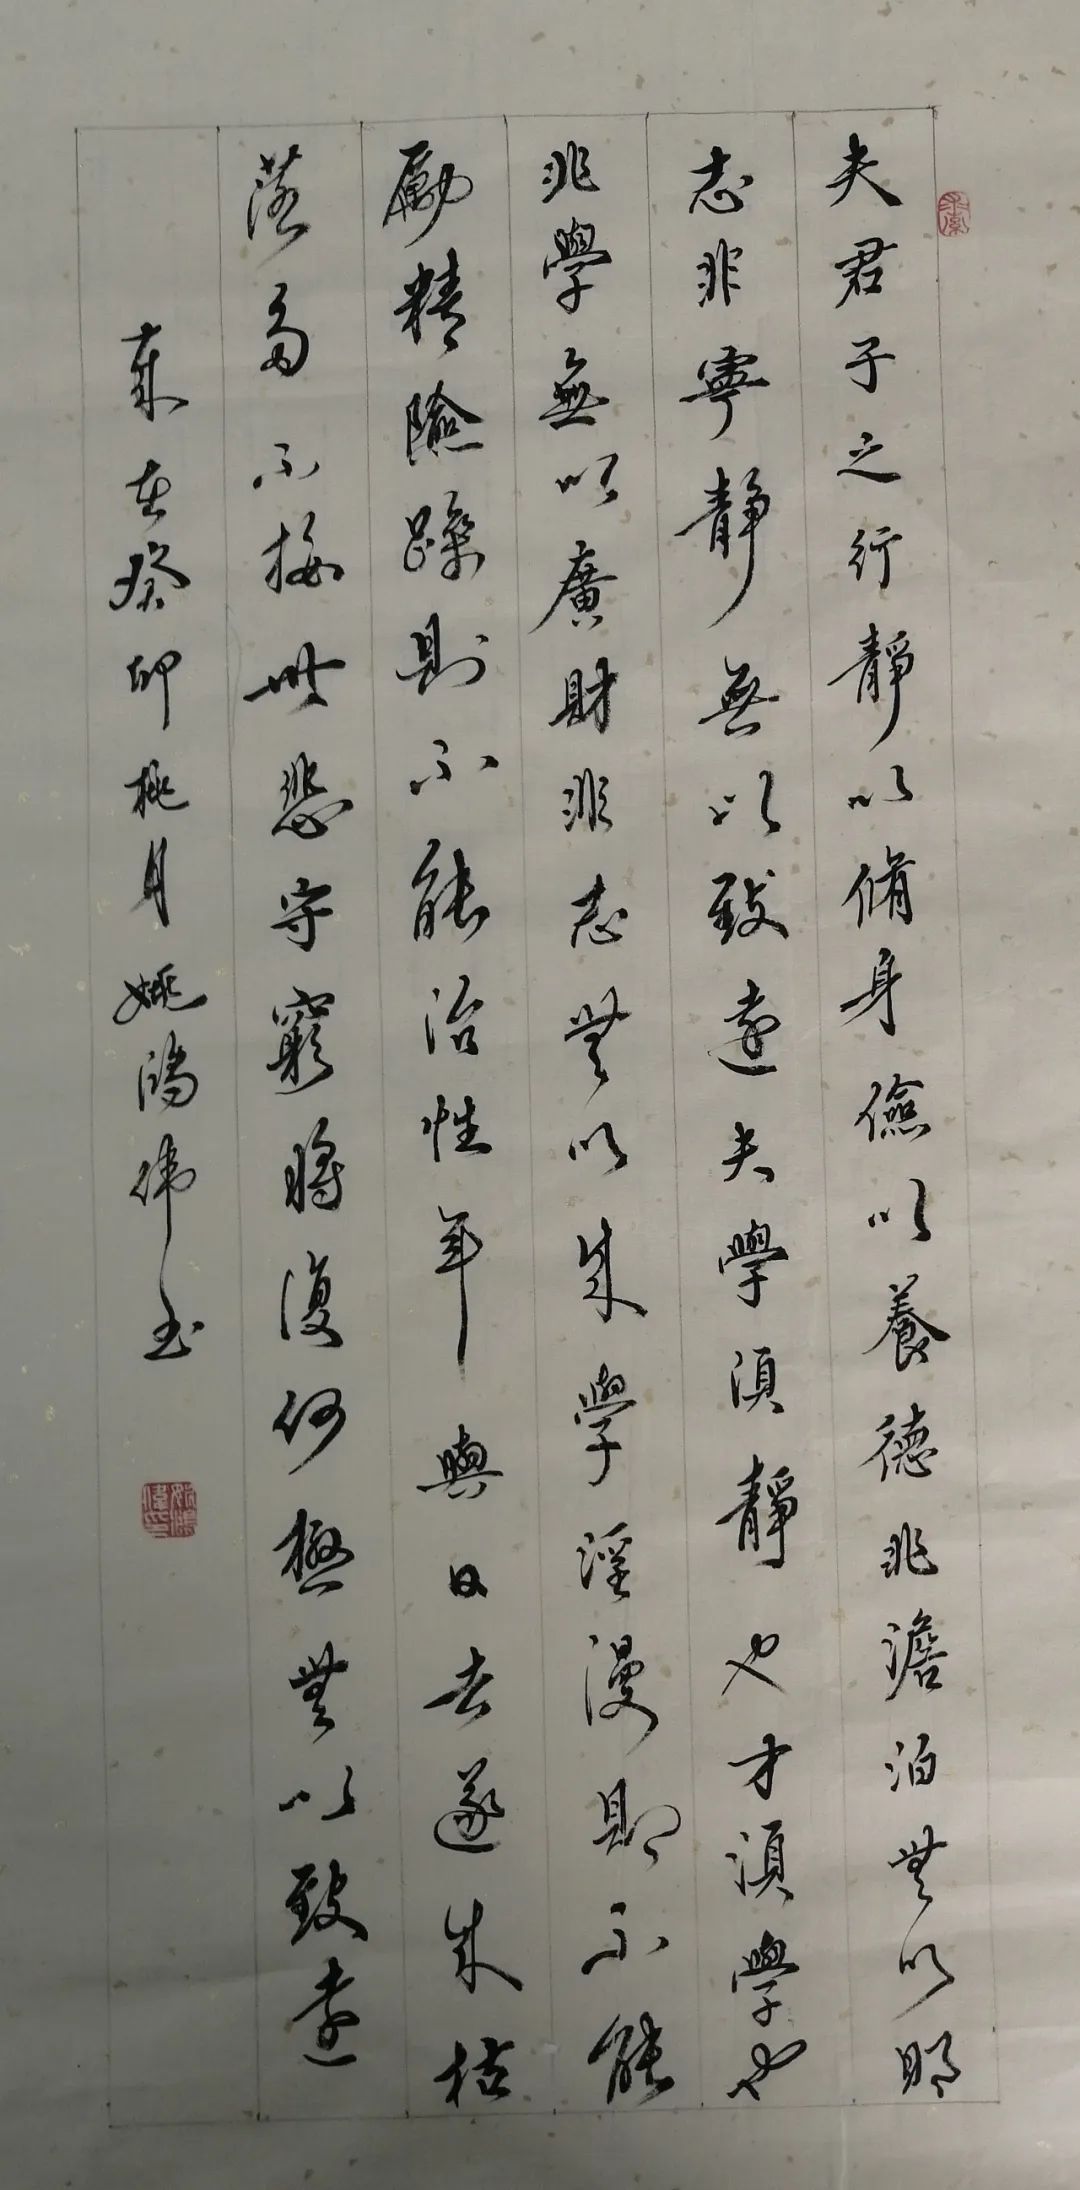 夫君子之行靜以脩身儉以養德非澹泊無以明
志非寧靜無以致遠夫學須靜也才須學也
非學無以廣財非志無以成學淫漫則不能
勵精險躁則不能治性年與日去遂成枯
落多不接世悲守窮將復何極無以致遠
歲在癸卯桃月姚鴻偉書
姚鴻偉印